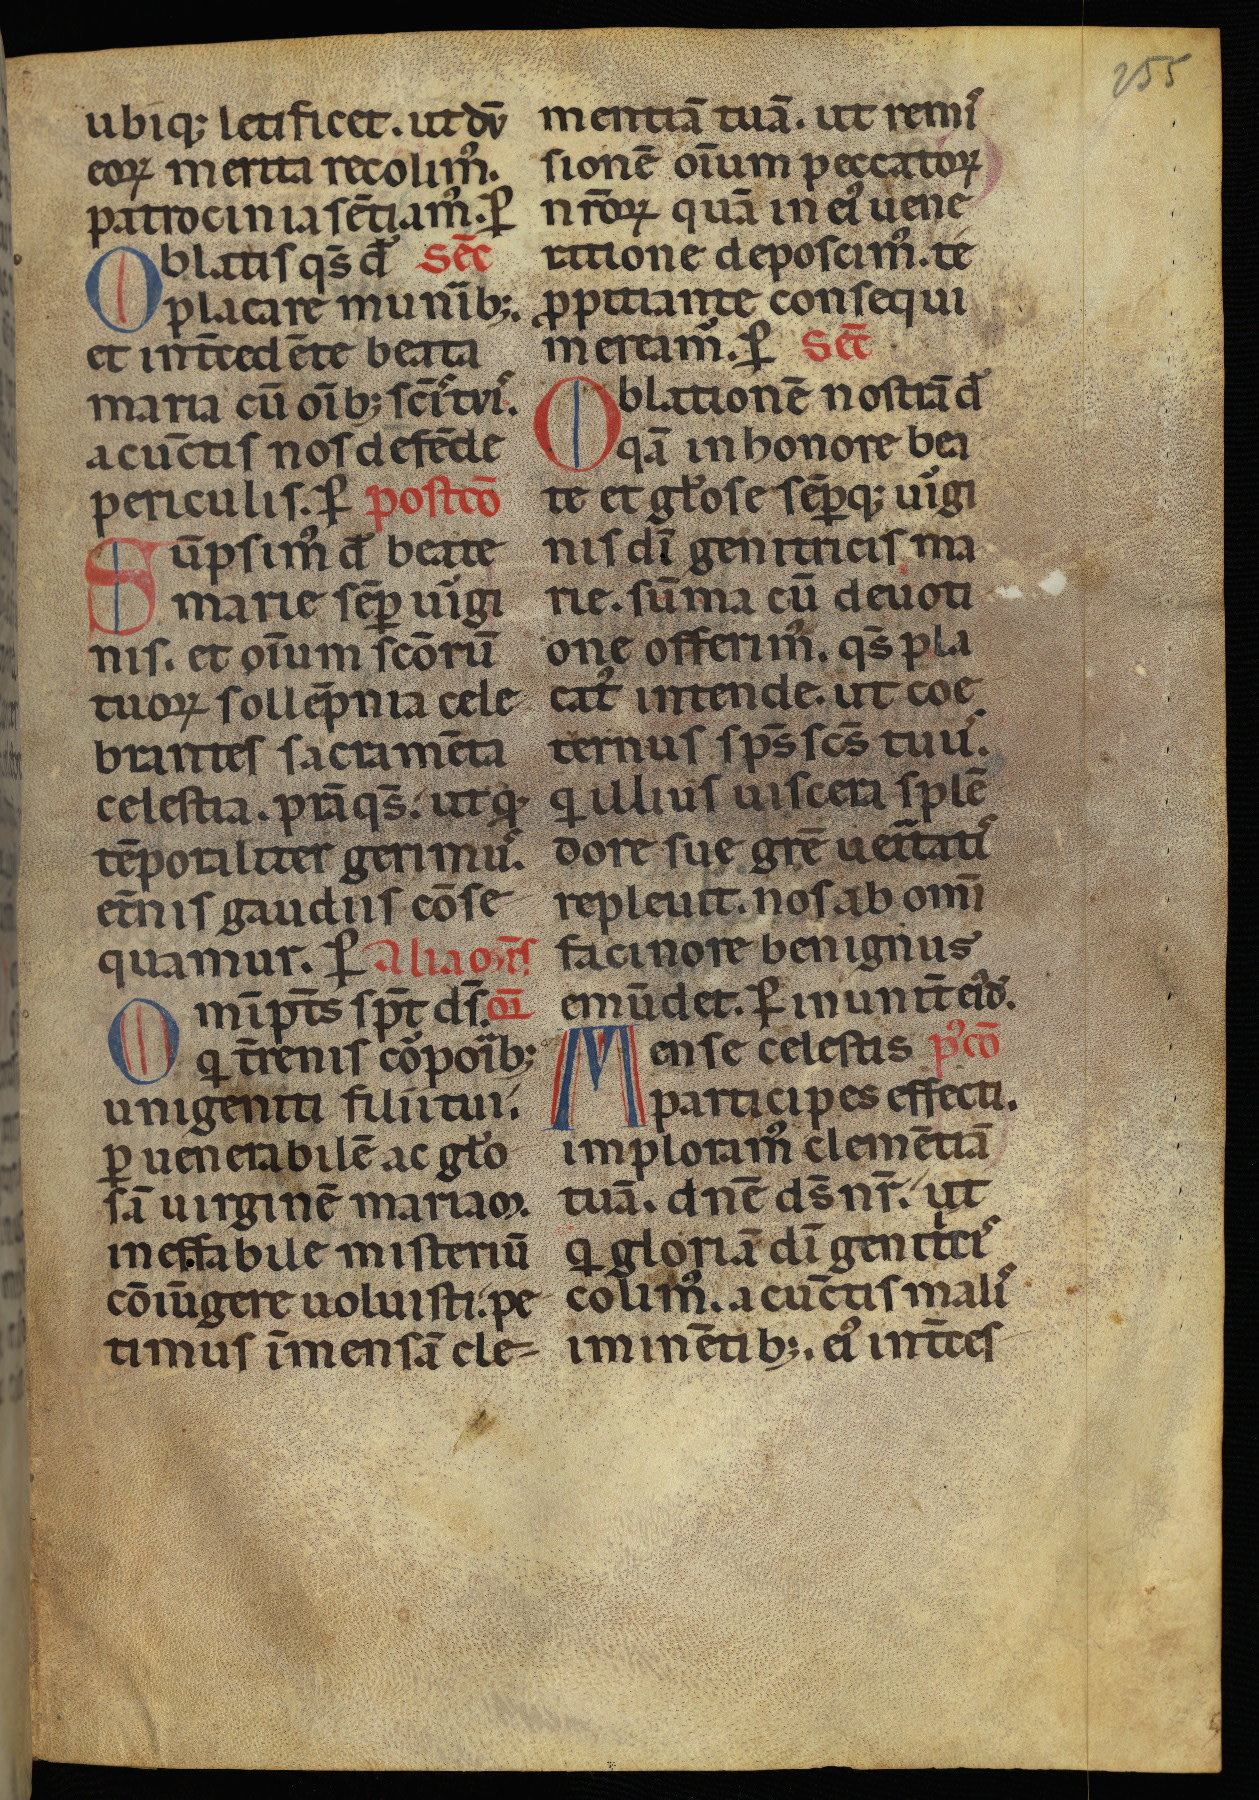 255
ubiq; letificet. ut dū
eoꝝ merita recolimꝰ.
patrocinia sētiamꝰ. ꝑ
Oblatis qs̄ d̄ Sēc
placare munīb;.
et int̄cedēte beata
maria cū oīb; scīs tuis.
a cūctis nos defēde
periculis. ꝑ postcō
Sūpsimꝰ d̄ beate
marie sēꝑ uirgi
nis. et oīum scōrū
tuoꝝ sollēpnia cele
brantes sacramēta
celestia. prā qs̄. ut ꝙ
tēporaliter gerimus.
et̄nis gaudiis cōse
quamur. ꝑ Alia
Om̄ip̄ts sp̄t ds̄. or̄
q t̄renis cōpoīb;
unigeniti filii tui.
ꝑ uenerabilē ac gło
sā uirginē mariam.
ineffabile misteriū
cōiūgere uoluisti. pe
timus īmensā cle-
mentiā tuā. ut remis
sionē oīum peccatoꝝ
nr̄oꝝ quā in eiꝰ uene
ratione deposcimꝰ. te
ꝓpitiante consequi
mereamꝰ. ꝑ Sēc
Oblationē nostrā d̄
qā in honore bea
te et głose sēꝑq; uirgi
nis dī genitricis ma
rie. sūma cū deuoti
one offerimꝰ. qs̄ pla
catꝰ intende. ut coe
ternus sp̄s scs̄ tuus.
q illius uiscera splē
dore sue gr̄e ueritatis
repleuit. nos ab omī
facinore benignus
emūdet. ꝑ in unit̄ eiꝰd.
Mense celestis pꝰcō
participes effecti.
imploramꝰ clemētiā
tuā. dnē ds̄ nr̄. ut
q gloriā dī genitricis
colimꝰ. a cūctis malis
iminētib;. eiꝰ int̄ces